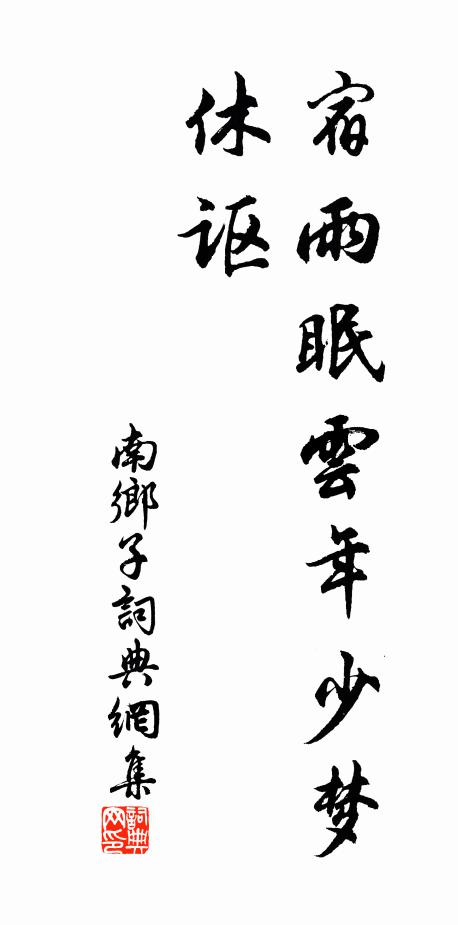 宿雨眠雲年少梦
休讴
南鄉子詞典網集
詞典网印